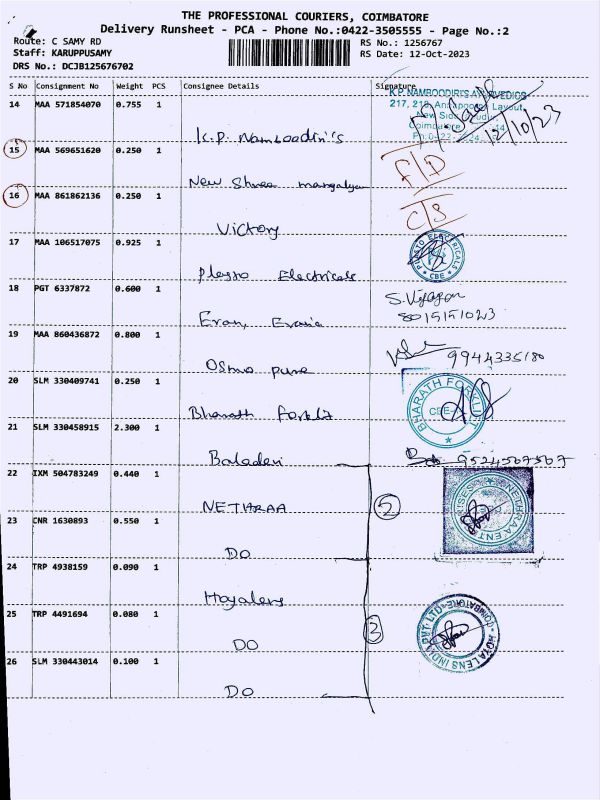 THE PROFESSIONAL COURIERS, COIMBATORE
Delivery Runsheet - PCA - Phone No.:0422-3505555 - Page No.:2
Route: C SAMY RD
Staff: KARUPPUSAMY
DRS No.: DCJB125676702
RS No.: 1256767
RS Date: 12-Oct-2023
S No Consignment No Weight PCS Consignee Details Signature
K.P. NAMBOODIRI'S AYURVEDICS
14 MAA 571854070 0.755 1
K.P. Namboodiri's
12/10/23
15 MAA 569651620 0.250 1
New Shree mangalyam
F/D
16 MAA 861862136 0.250 1
Victory
C/S
17 MAA 106517075 0.925 1
Plasto Electricals
ELECTRICALS
CBE
18 PGT 6337872 0.600 1
S. Vijayan
8015151023
19 MAA 860436872 0.800 1
Osmo pure
9944335180
20 SLM 330409741 0.250 1
Bharath Forklift
BHARATH FORKLIFT
CBE-
21 SLM 330458915 2.300 1
Baladevi
9524567567
22 IXM 504783249 0.440 1
NETHRAA
2
23 CNR 1630893 0.550 1
DO
24 TRP 4938159 0.090 1
Hoyalens
25 TRP 4491694 0.080 1
DO
3
HOYA LENS INDIA PVT. LTD
COIMBATORE
26 SLM 330443014 0.100 1
DO